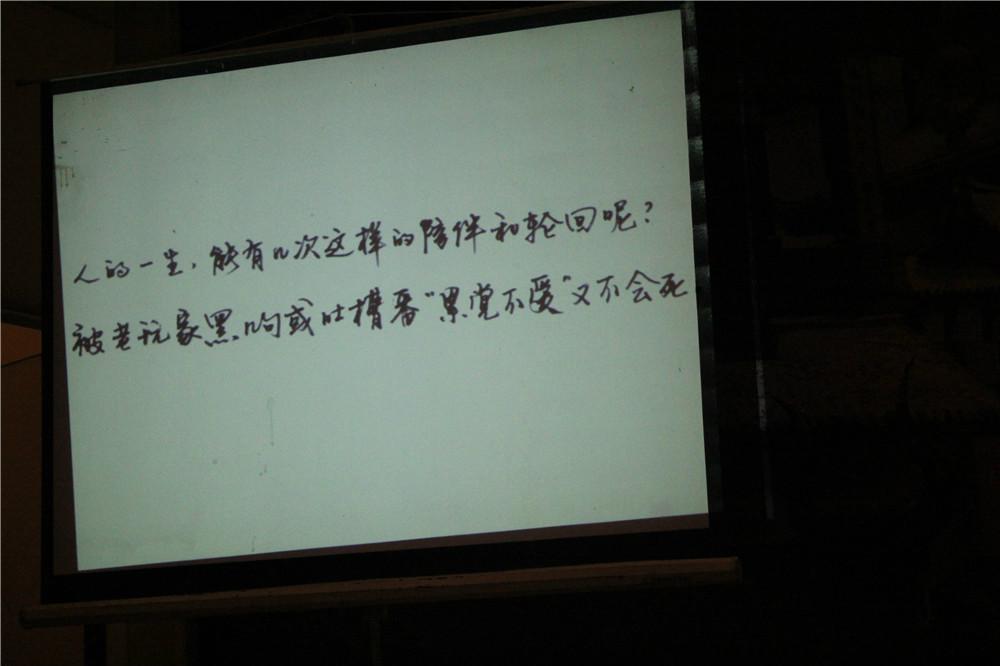 人的一生,能有几次这样的陪伴和轮回呢?
被老玩家黑几句或吐槽番“累觉不爱”又不会死